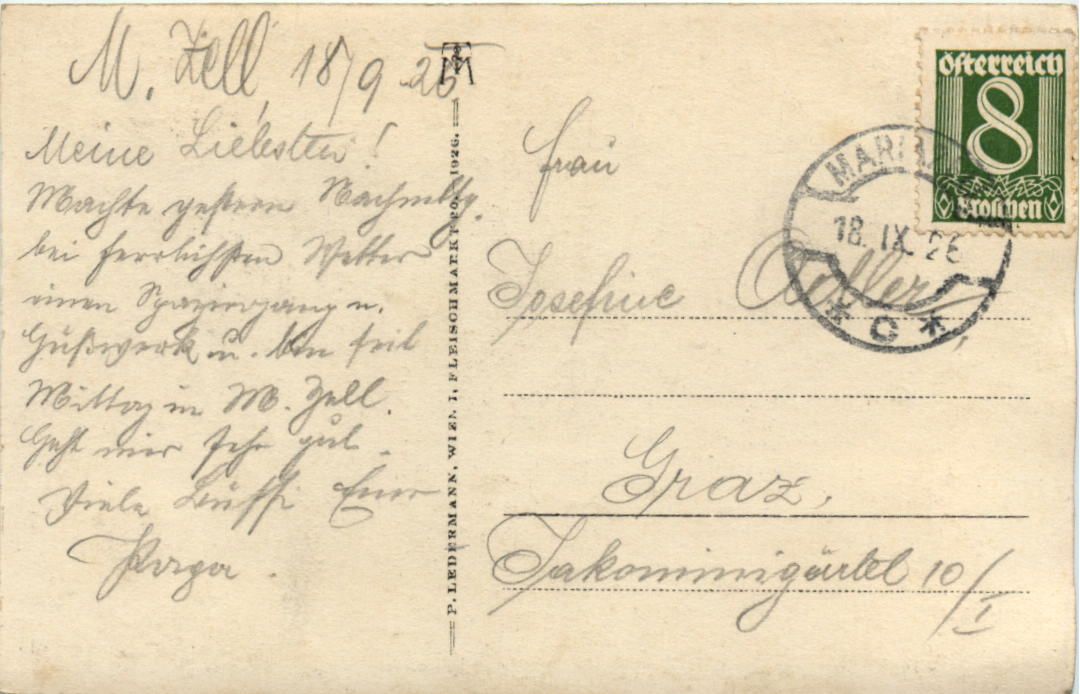 M. Zell, 18/9 26
Meine Liebsten!
Machte gestern Nachmittg.
bei herrlichsten Wetter
einen Spaziergang n.
Gußwerk u. bin seit
Mittag in M. Zell.
Geht mir sehr gut.
Viele Bussi Euer
Papa.
P. LEDERMANN, WIEN I, FLEISCHMARKT 20. 1926.
Frau
Josefine Adler,
Graz,
Jakominigürtel 10/I
Österreich
8
Groschen
MARIAZ
18. IX. 26
* C *